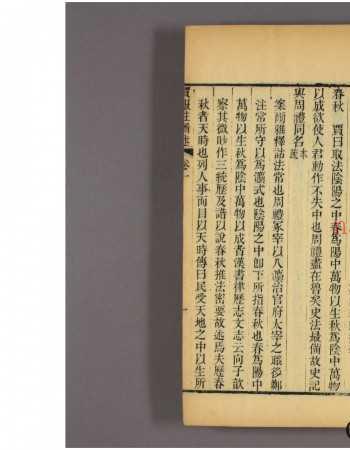 春秋　賈曰取法陰陽之中春爲陽中萬物以生秋爲陰中萬物
以成欲使人君動作不失中也周禮盡在魯矣史法最備故史記
與周禮同名本疏
案爾雅釋詁法常也周禮冢宰以八灋治官府大宰之職後鄭
注常所守以爲灋式也陰陽之中卽下所指春秋也春爲陽中
萬物以生秋爲陰中萬物以成者漢書律歷志文志云向子歆
察其微眇作三統歷及譜以說春秋推法密要故述焉夫歷春
秋者天時也列人事而目以天時傳曰民受天地之中以生所
賈服註 卷一